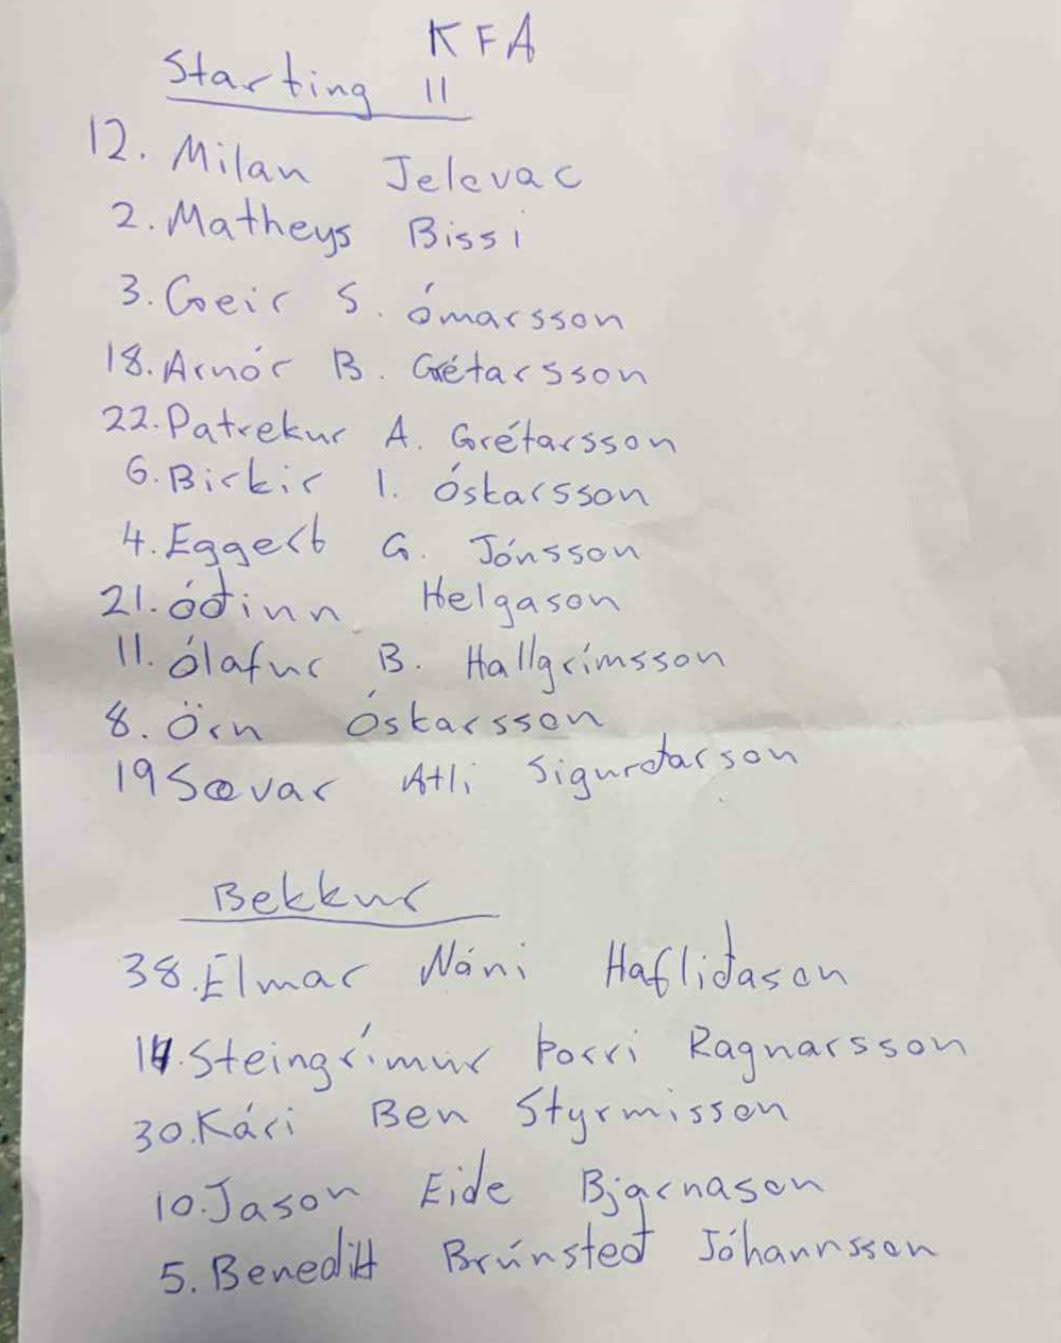 KFA
Starting 11
12. Milan Jelovac
2. Matheys Bissi
3. Geir S. Ómarsson
18. Arnór B. Grétarsson
22. Patrekur A. Grétarsson
6. Birkir I. Óskarsson
4. Eggert G. Jónsson
21. Óðinn Helgason
11. Ólafur B. Hallgrímsson
8. Örn Óskarsson
19 Sævar Atli Sigurðarson
Bekkur
38. Elmar Náni Hafliðason
Steingrímur Þorri Ragnarsson
30. Kári Ben Styrmisson
10. Jason Eide Bjarnason
5. Benedikt Brúnsteð Jóhannsson